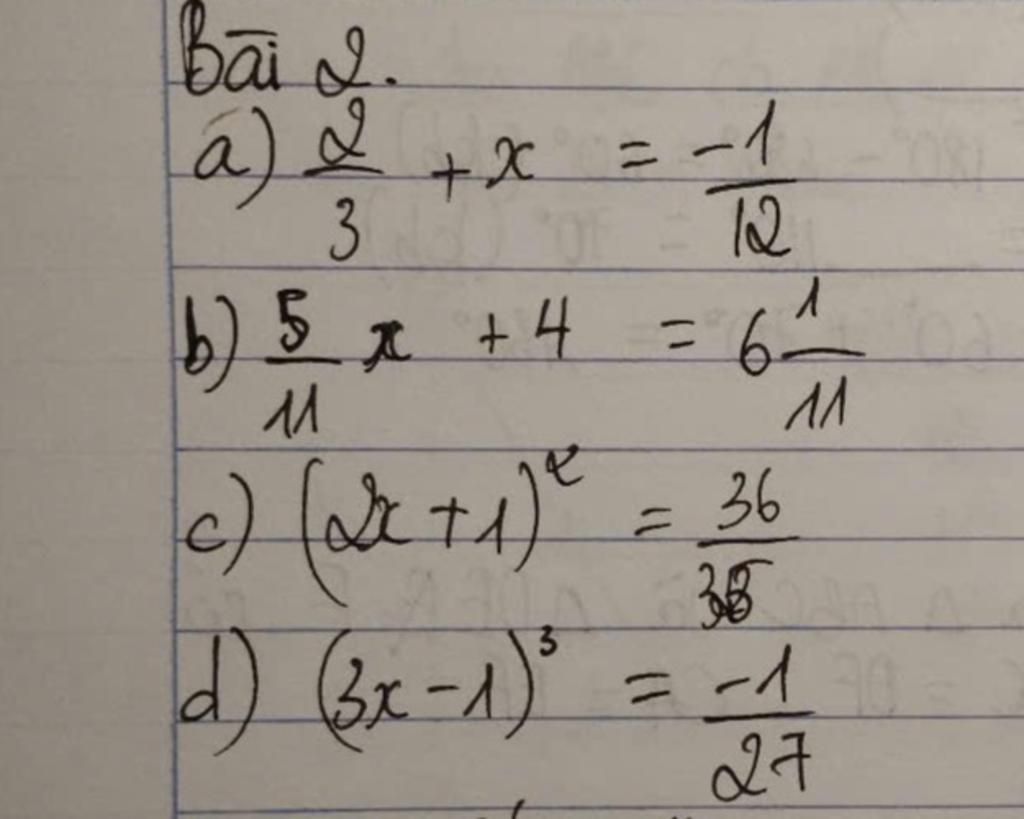 Bài 2.
a) 2/3 + x = -1/12
b) 5/11 x + 4 = 6 1/11
c) (2x + 1)² = 36/
d) (3x - 1)³ = -1/27